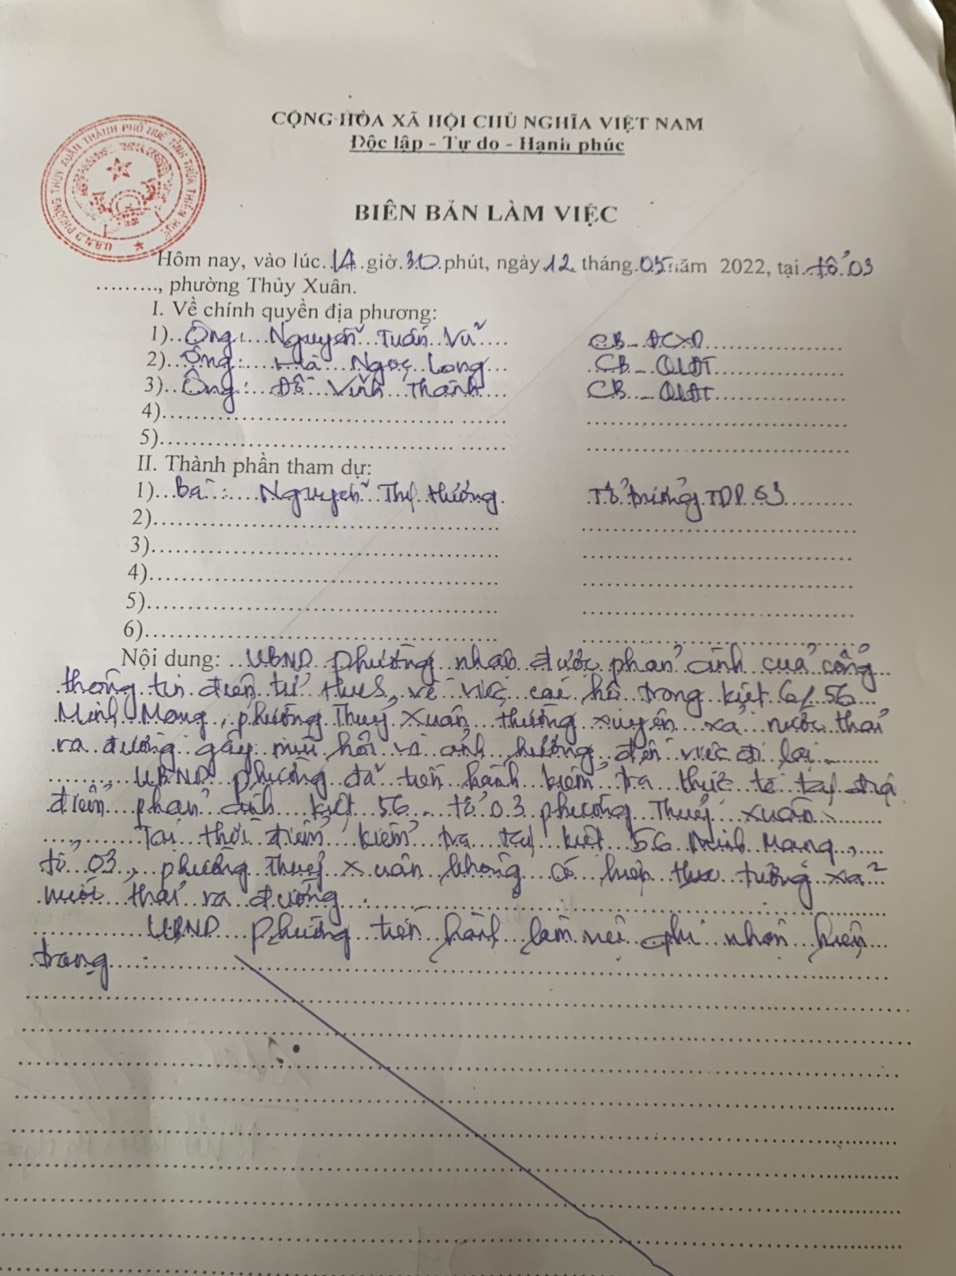 CỘNG HÒA XÃ HỘI CHỦ NGHĨA VIỆT NAM
Độc lập - Tự do - Hạnh phúc
U.B.N.D PHƯỜNG THỦY XUÂN THÀNH PHỐ HUẾ TỈNH THỪA THIÊN HUẾ
BIÊN BẢN LÀM VIỆC
Hôm nay, vào lúc 14 giờ 30 phút, ngày 12 tháng 05 năm 2022, tại tổ 03
........., phường Thủy Xuân.
I. Về chính quyền địa phương:
1) Ông: Nguyễn Tuấn Vũ CB - ĐCXD
2) Ông: Hà Ngọc Long CB - QLĐT
3) Ông: Đỗ Vĩnh Thành CB - QLĐT
4)
5)
II. Thành phần tham dự:
1) Bà: Nguyễn Thị Hương Tổ trưởng TDP 03
2)
3)
4)
5)
6)
Nội dung: UBND phường nhận được phản ánh của cổng
thông tin điện tử HueS, về việc các hộ trong kiệt 61/56
Minh Mạng, phường Thuỷ Xuân thường xuyên xả nước thải
ra đường gây mùi hôi và ảnh hưởng đến việc đi lại
UBND phường đã tiến hành kiểm tra thực tế tại địa
điểm phản ánh kiệt 56 - tổ 03 phường Thuỷ Xuân
Tại thời điểm kiểm tra tại kiệt 56 Minh Mạng,
tổ 03, phường Thuỷ Xuân không có hiện tượng xả
nước thải ra đường
UBND phường tiến hành làm việc ghi nhận hiện
trạng